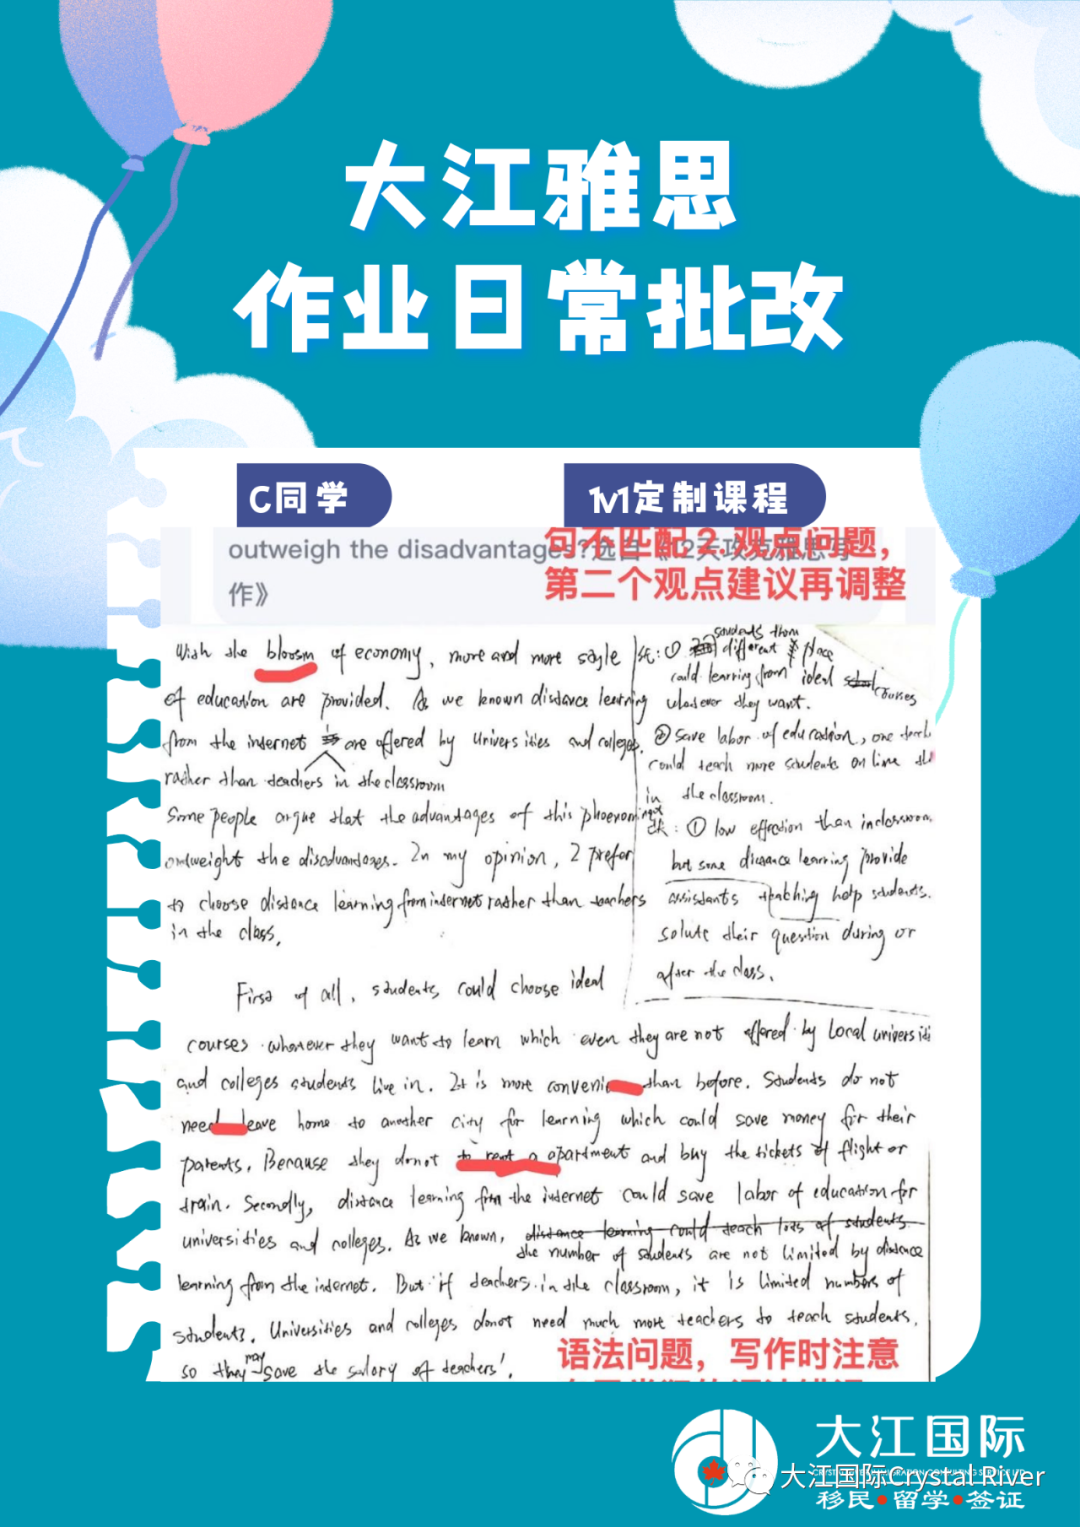 大江雅思
作业日常批改
C同学
1v1定制课程
句不匹配2.观点问题，
outweigh the disadvantages?选自《12天攻克雅思写
作》
第二个观点建议再调整
With the bloosm of economy, more and more style
of education are provided. As we known distance learning
from the internet are offered by universities and colleges.
rather than teachers in the classroom
Some people argue that the advantages of this phoenomingt
outweight the disadvantages. In my opinion, I prefer
to choose distance learning from internet rather than teachers
in the class.
优: ① students from
different place
could learning from ideal courses
whatever they want.
② save labor of education, one teach
could teach more students on line than
in the classroom.
缺: ① low effection than inclassroom.
but some distance learning provide
assistants teaching help students.
solute their question during or
after the class.
First of all, students could choose ideal
courses whenever they want to learn which even they are not offered by local universiti
and colleges students live in. It is more conveni than before. Students do not
need leave home to another city for learning which could save money for their
parents. Because they donot to rent a apartment and buy the tickets of flight or
train. Secondly, distance learning from the internet could save labor of education for
universities and colleges. As we known, distance learning could teach lots of students
the number of students are not limited by distance
learning from the internet. But if teachers in the classroom, it is limited numbers of
students. Universities and colleges donot need much more teachers to teach students.
so they may save the salary of teachers'.
语法问题，写作时注意
大江国际
大江国际Crystal River
移民·留学·签证